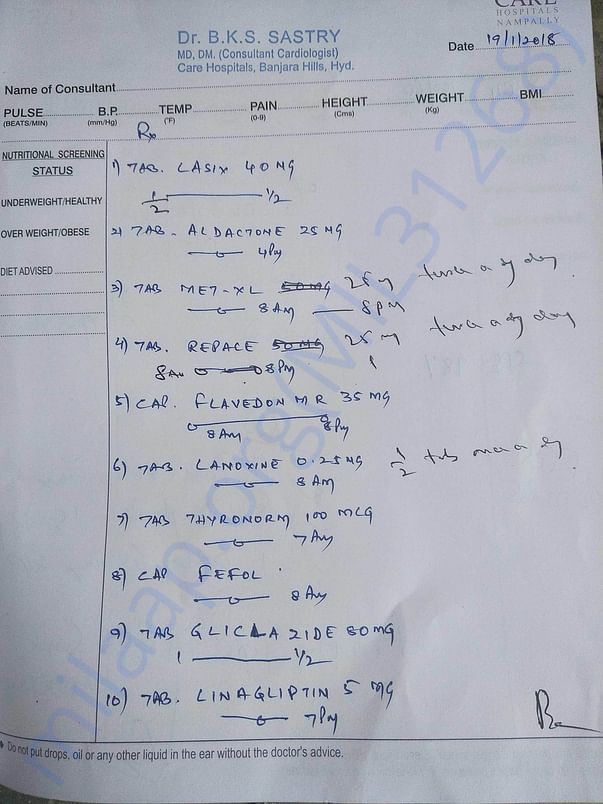 CARE
HOSPITALS
NAMPALLY
Dr. B.K.S. SASTRY
MD, DM. (Consultant Cardiologist)
Care Hospitals, Banjara Hills, Hyd.
Date 19/1/2018
Name of Consultant
PULSE (BEATS/MIN) B.P. (mm/Hg) TEMP (°F) PAIN (0-9) HEIGHT (Cms) WEIGHT (Kg) BMI
Rx
NUTRITIONAL SCREENING
STATUS
UNDERWEIGHT/HEALTHY
OVER WEIGHT/OBESE
DIET ADVISED
1) TAB. LASIX 40 MG
1/2 1/2
2) TAB - ALDACTONE 25 MG
4Pm
3) TAB MET-XL 50MG 25 twice a day
8Am 8Pm
4) TAB. REPACE 50MG 25 twice a day
8Am 8Pm
5) CAP. FLAVEDON MR 35 MG
8Am 8Pm
6) TAB. LANOXINE 0.25MG 1/2 tab once a day
8 Am
7) TAB THYRONORM 100 MCG
7 Am
8) CAP FEFOL
8 Am
9) TAB GLICLAZIDE 80MG
1 1/2
10) TAB. LINAGLIPTIN 5 MG
7Pm
Do not put drops, oil or any other liquid in the ear without the doctor's advice.
milaap.org/MIL312681